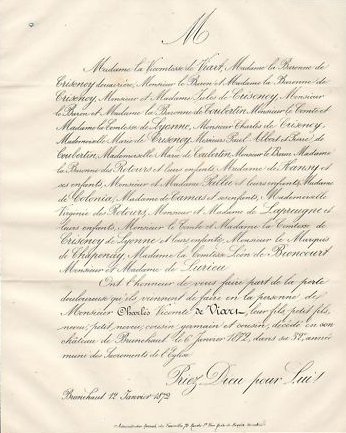 M
Madame la Vicomtesse de Viart, Madame la Baronne de
Crisenoy douairière, Monsieur le Baron et Madame la Baronne de
Crisenoy, Monsieur et Madame Jules de Crisenoy, Monsieur
le Baron et Madame la Baronne de Coubertin, Monsieur le Comte et
Madame la Comtesse de Lyonne, Monsieur Charles de Crisenoy,
Mademoiselle Marie de Crisenoy, Messieurs Paul, Albert et Pierre de
Coubertin, Mademoiselle Marie de Coubertin, Monsieur le Baron, Madame
la Baronne des Rotours et leurs enfants, Madame de Hansy et
ses enfants, Monsieur et Madame et leurs enfants, Madame
de Colonia, Madame de Carnas et ses enfants, Mademoiselle
Virginie de Rotours, Monsieur et Madame de Lapreugne et
leurs enfants, Monsieur le Comte et Madame la Comtesse de
Crisenoy de Lyonne et leurs enfants, Monsieur le Marquis
de Chaponay, Madame la Comtesse Léon de Brioncourt
Monsieur et Madame de Lurieu
Ont l'honneur de vous faire part de la perte
douloureuse qu'ils viennent de faire en la personne de
Monsieur Charles Vicomte de Viart, leur fils, petit fils,
neveu, petit neveu, cousin germain et cousin, décédé en son
château de Brunehaut le 6 janvier 1872, dans sa année,
muni des Sacrements de l'Eglise
Priez Dieu pour Lui!
Brunehaut 12 Janvier 1872